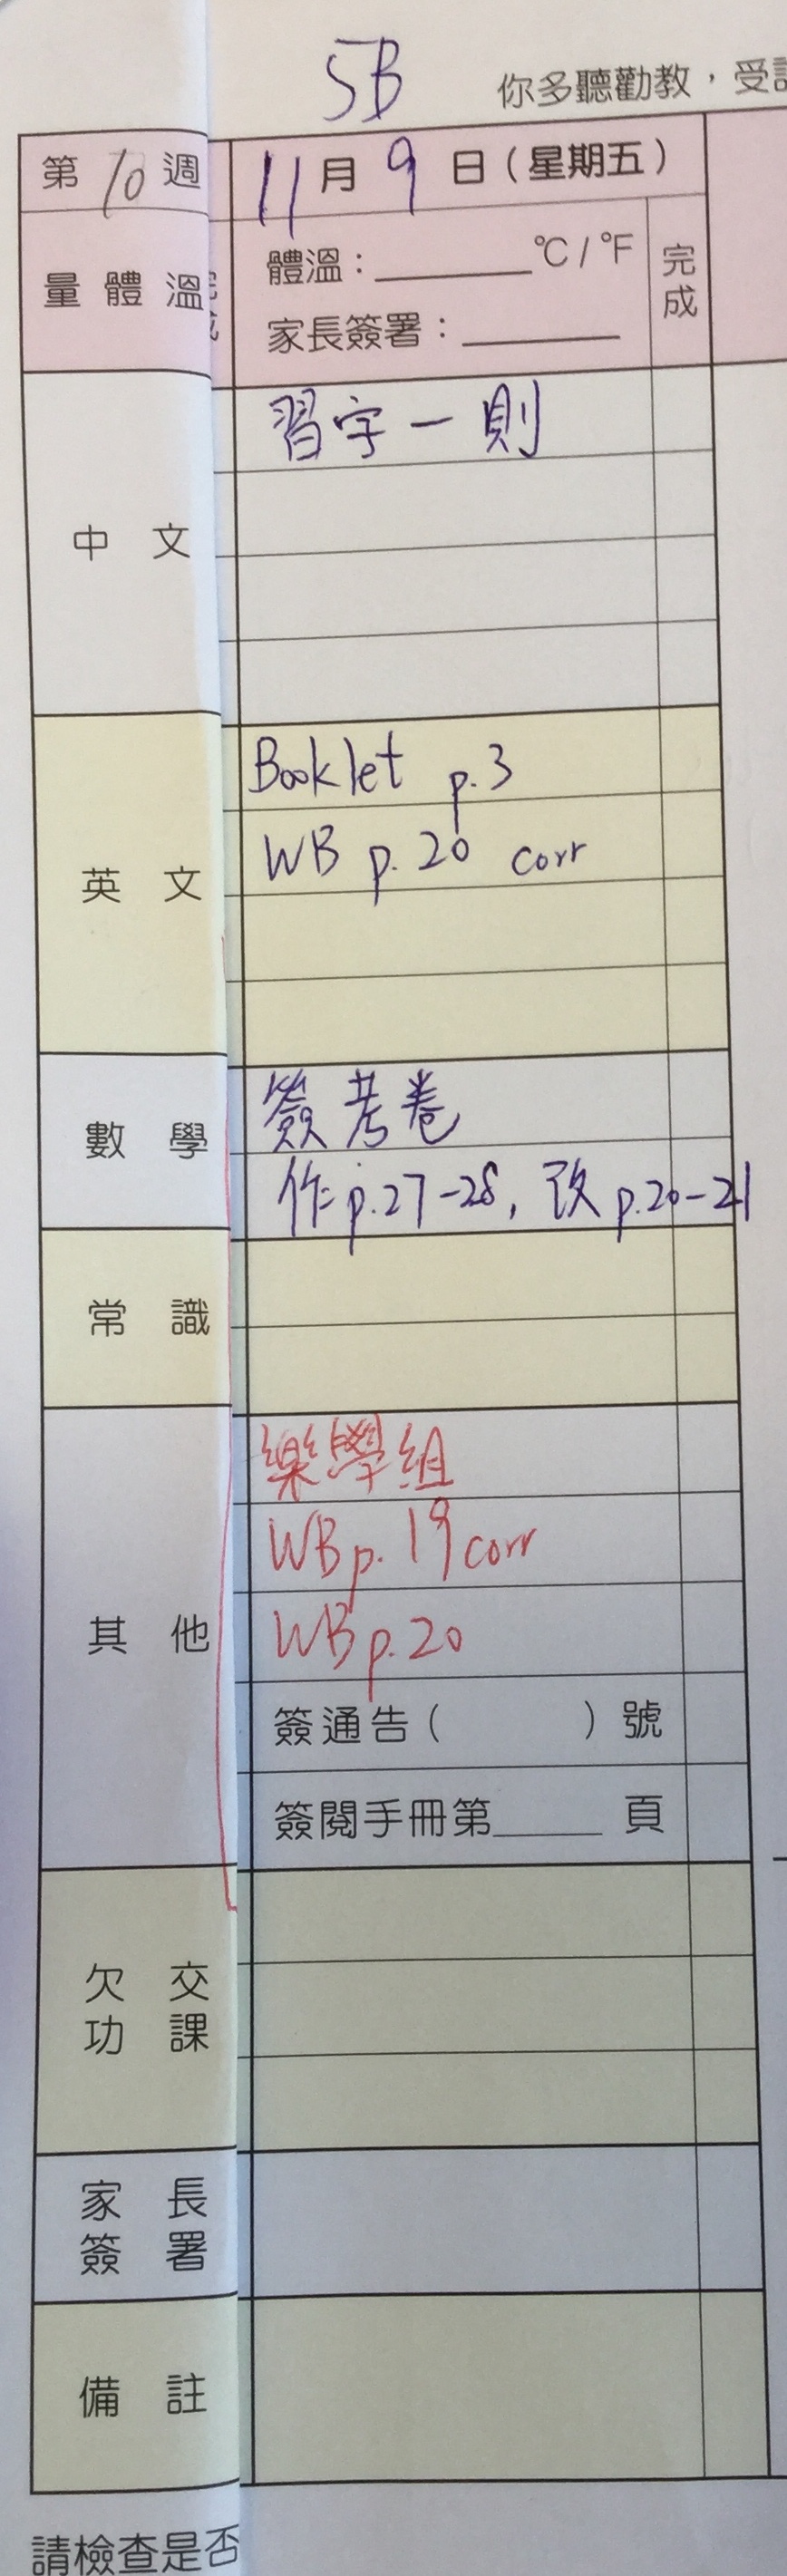 5B
你多聽勸教，受
第10週 11月9日（星期五）
量體溫
體溫：______℃/℉
家長簽署：______
完成
中文
習字一則
英文
Booklet p.3
WB p.20 corr
數學
簽考卷
作p.27-28, 改p.20-21
常識
其他
樂學組
WB p.19 corr
WB p.20
簽通告（ ）號
簽閱手冊第____頁
欠交功課
家長簽署
備註
請檢查是否